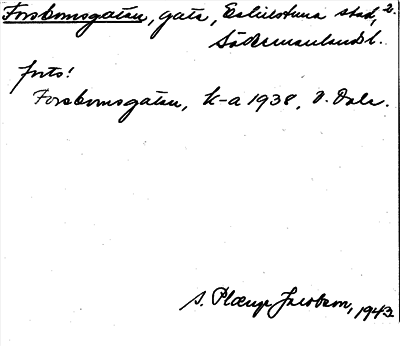 Forsbomsgatan, gata, Eskilstuna stad, 2.
Södermanlands l.
forts!
Forsbomsgatan, k-a 1938, O. Dala.
S. Plænge Jacobson, 1943